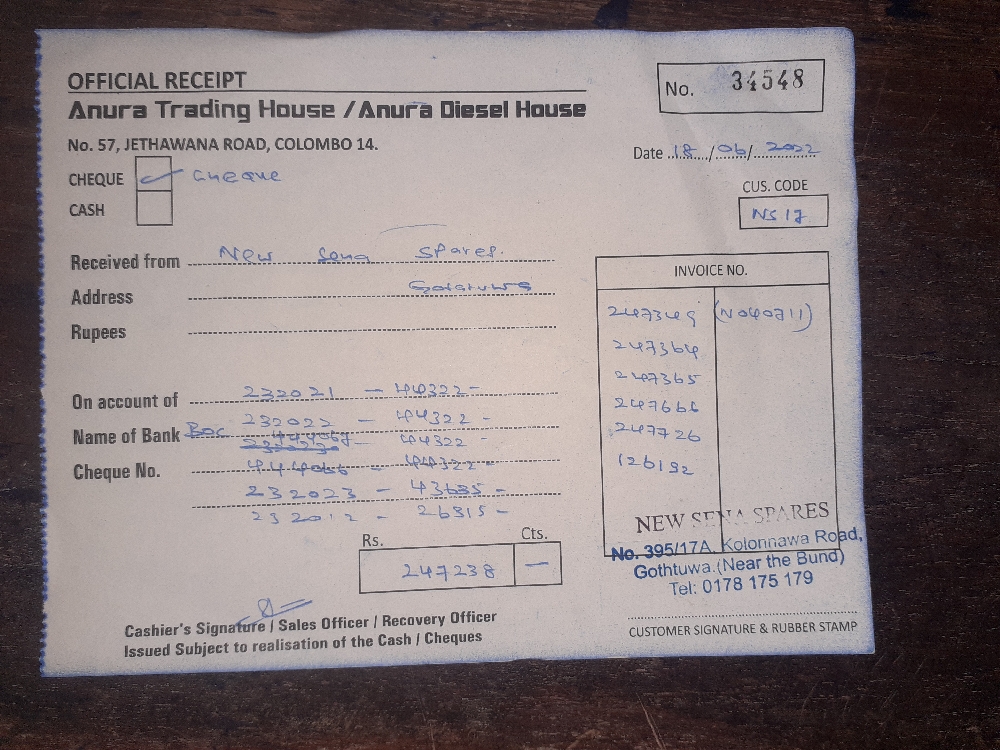 OFFICIAL RECEIPT
No. 34548
Anura Trading House / Anura Diesel House
No. 57, JETHAWANA ROAD, COLOMBO 14.
Date 18/06/2022
CHEQUE cheque
CASH
CUS. CODE
NS 17
Received from New Sena Spares.
Address
Rupees
INVOICE NO.
247349 (N040711)
247364
247365
247666
247726
126192
On account of 232021 - 44322-
232022 - 44322 -
Name of Bank BOC 444067 - 44322 -
Cheque No. 444066 - 44322 -
232023 - 43635 -
232012 - 26315 -
Rs. Cts.
247238 —
NEW SENA SPARES
No. 395/17A, Kolonnawa Road,
Gothtuwa.(Near the Bund)
Tel: 0178 175 179
Cashier's Signature / Sales Officer / Recovery Officer
Issued Subject to realisation of the Cash / Cheques
CUSTOMER SIGNATURE & RUBBER STAMP